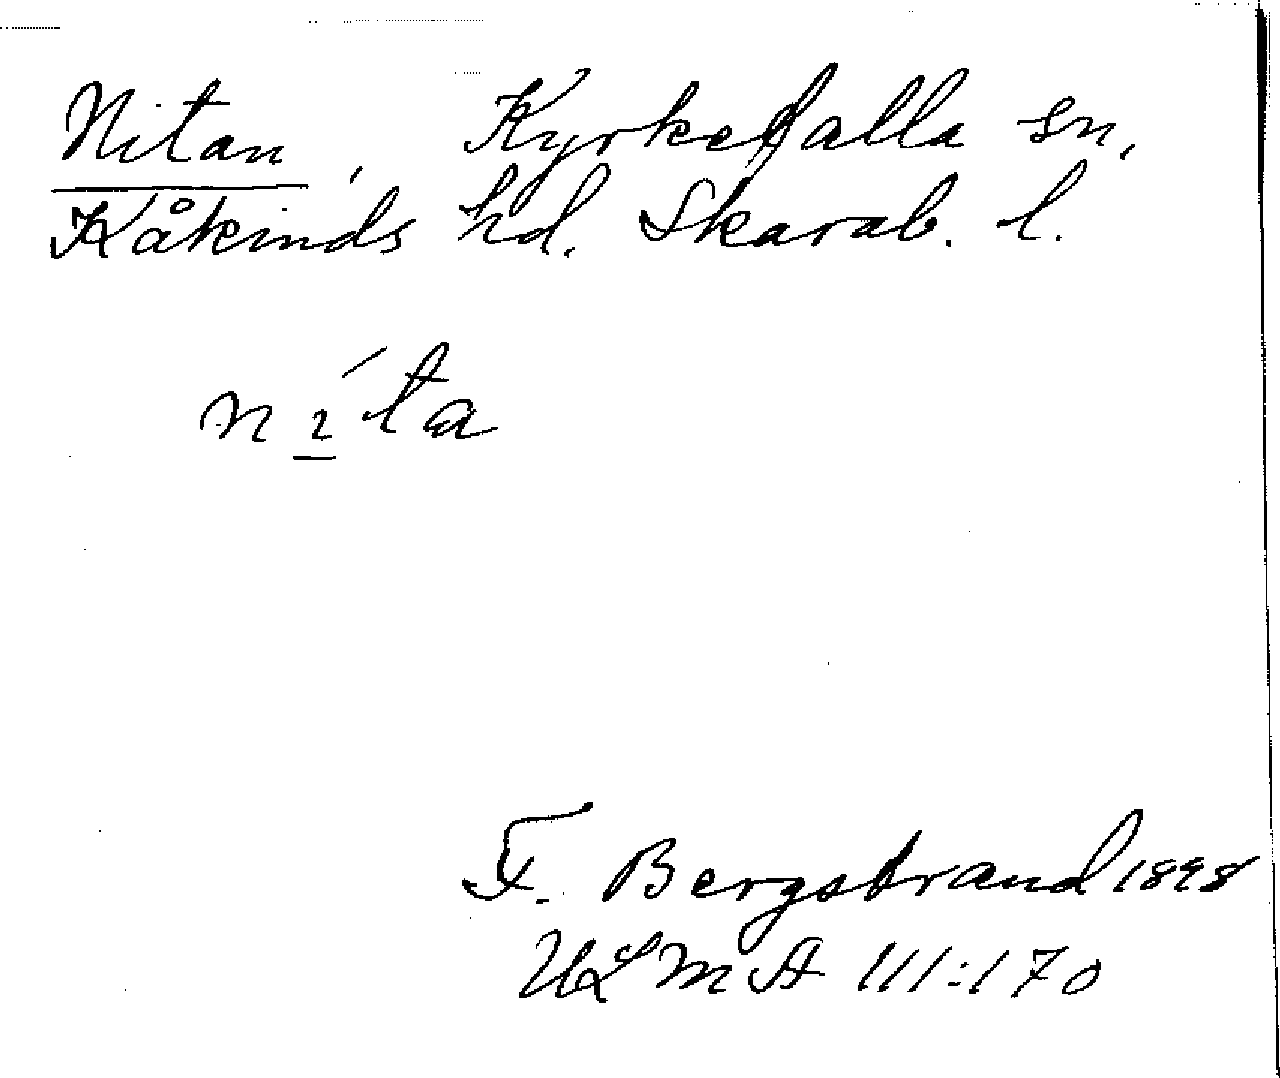 Nitan, Kyrkefalla sn,
Kåkinds hd. Skarab. l.
nı̲´ta
F. Bergstrand 1898
ULMA 111:170